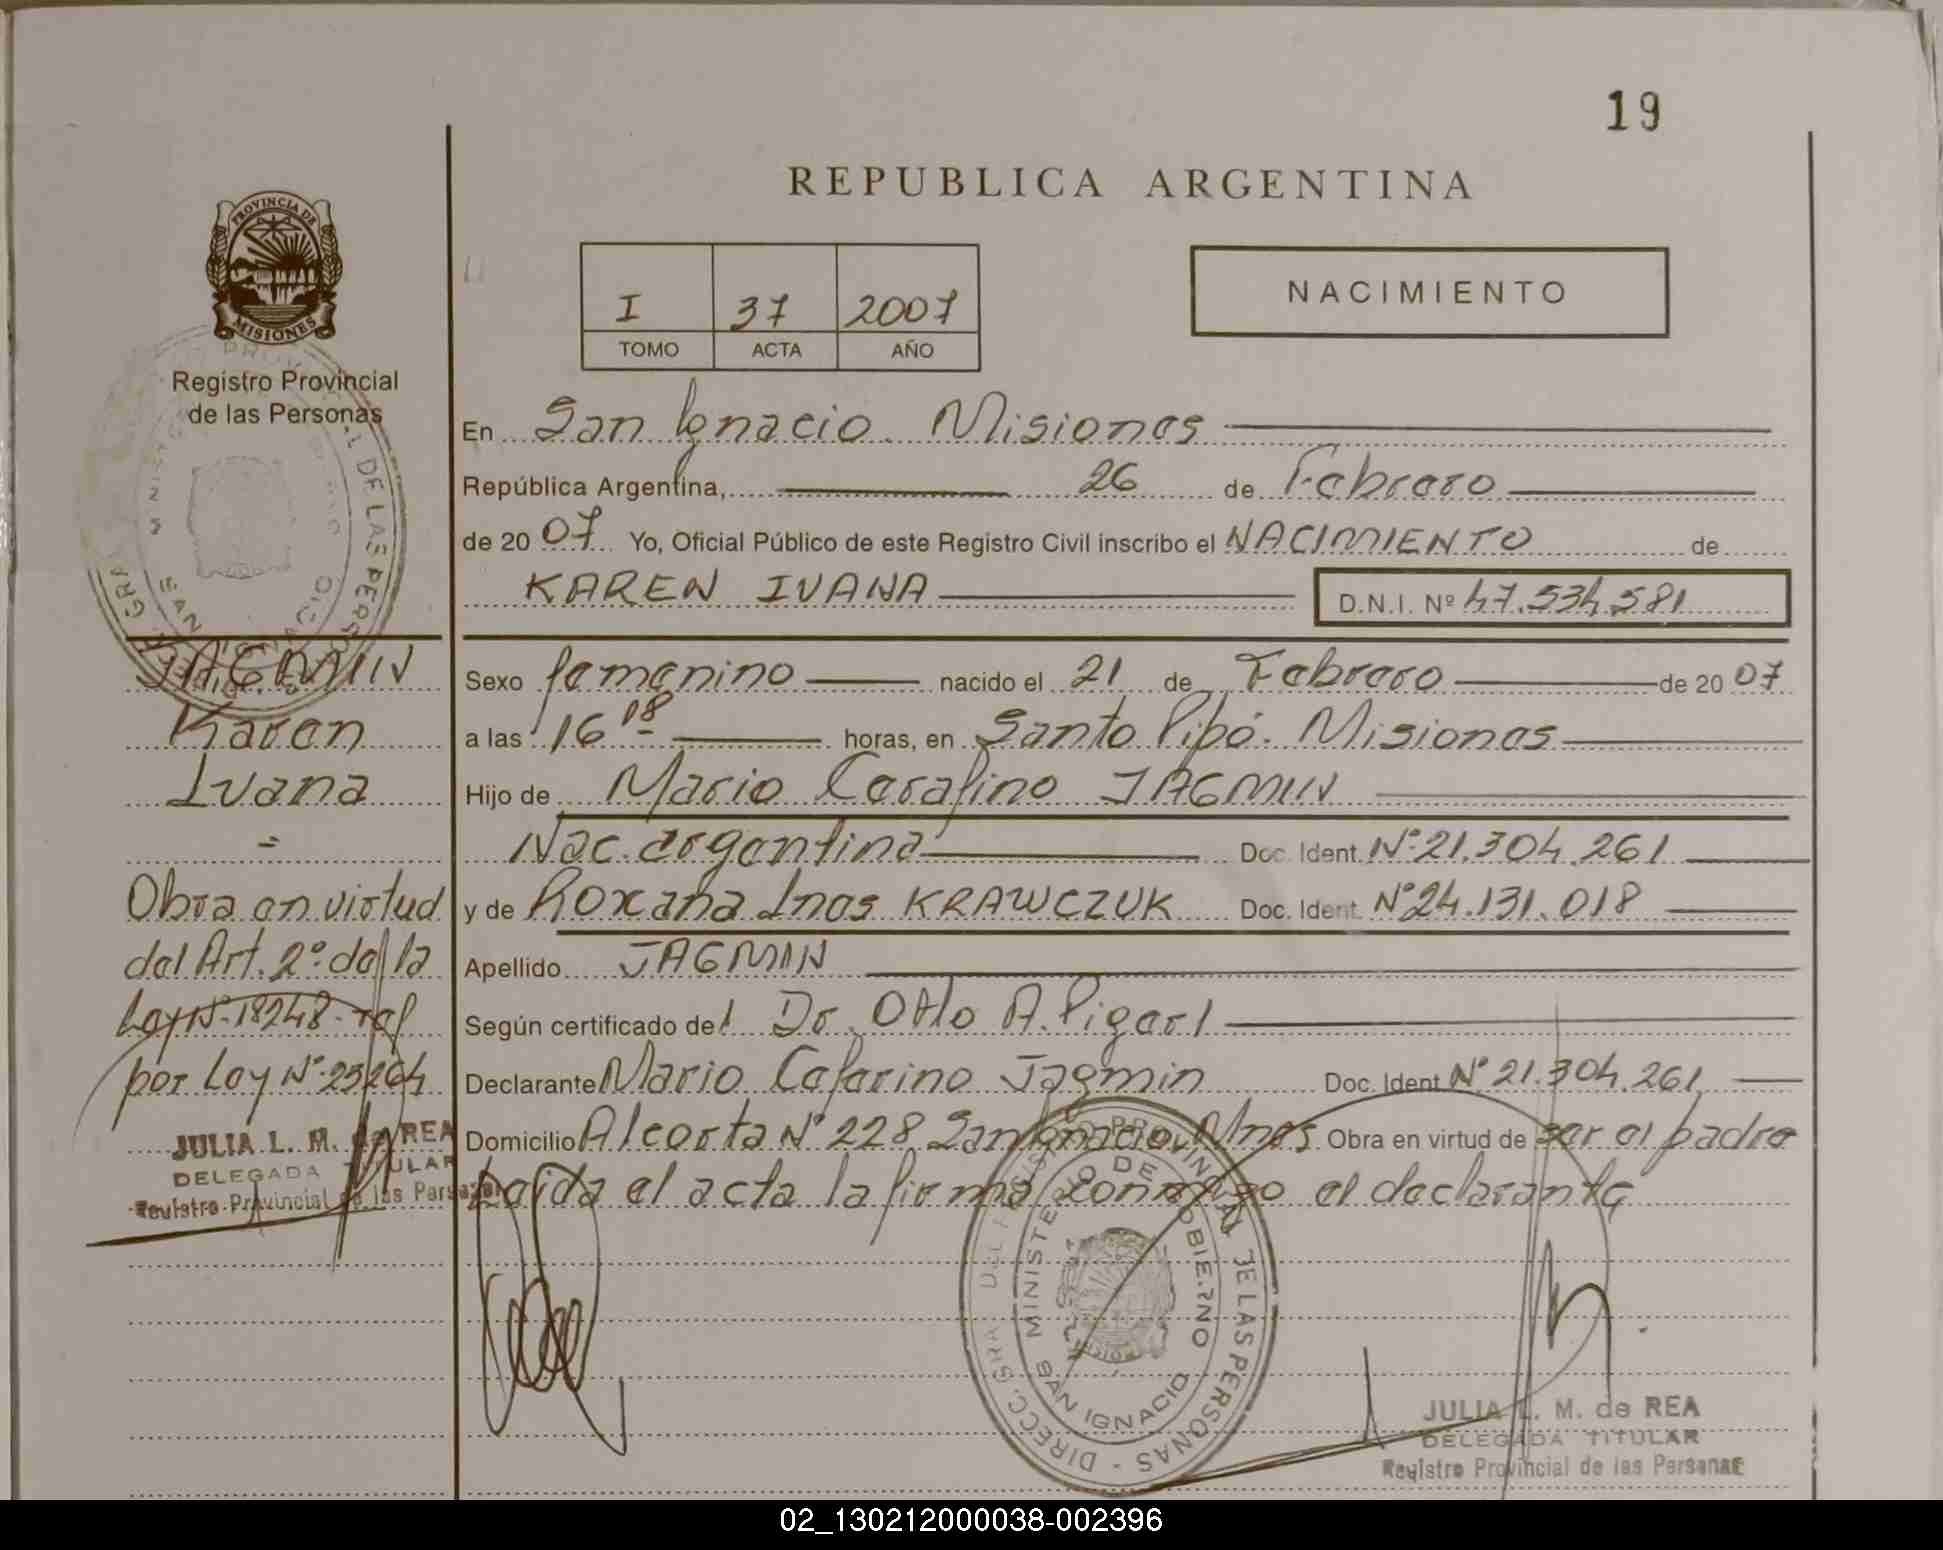 19
REPUBLICA ARGENTINA
PROVINCIA DE
MISIONES
Registro Provincial
de las Personas
I 37 2007
TOMO ACTA AÑO
NACIMIENTO
En San Ignacio Misiones
República Argentina, 26 de Febrero
de 2007 Yo, Oficial Público de este Registro Civil inscribo el NACIMIENTO de
KAREN IVANA D.N.I. Nº 47.534.581
JAGMIN
Karen
Ivana
=
Obra en virtud
del Art. 2º de la
Ley Nº 18248 ref
por Ley Nº 23264
JULIA L. M. de REA
DELEGADA TITULAR
Registro Provincial de las Personas
Sexo femenino nacido el 21 de Febrero de 2007
a las 16 18 horas, en Santo Pipó. Misiones
Hijo de Mario Ceferino JAGMIN
Nac. argentina Doc. Ident. Nº 21.304.261
y de Roxana Ines KRAWCZUK Doc. Ident. Nº 24.131.018
Apellido JAGMIN
Según certificado del Dr. Otto A. Pigerl
Declarante Mario Ceferino Jagmin Doc. Ident. Nº 21.304.261
Domicilio Alcorta Nº 228 San Ignacio Mnes Obra en virtud de ser el padre
Leida el acta la firma conmigo el declarante
DIRECC. GRAL. DEL REGISTRO PROVINCIAL DE LAS PERSONAS
MINISTERIO DE GOBIERNO
SAN IGNACIO
JULIA L. M. de REA
DELEGADA TITULAR
Registro Provincial de las Personas
02_130212000038-002396